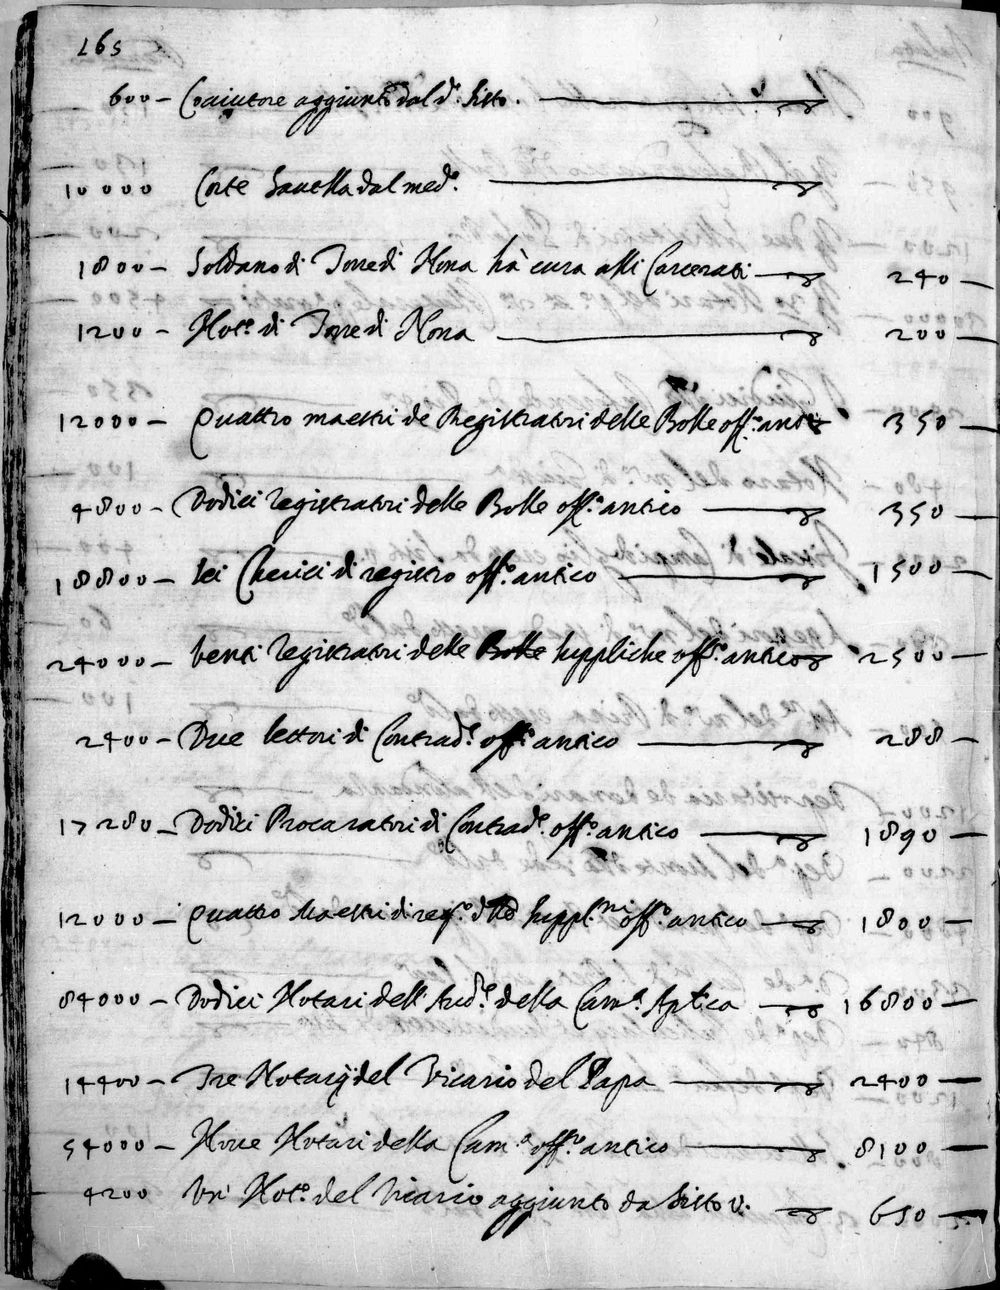 265
600 – Coaiutore aggiunto dal d.º Sisto.
10000 Corte Sauella dal med.º
1800 – Soldano di Torre di Nona hà cura alli Carcerati 240 –
1200 – Not.º di Torre di Nona 200 –
12000 – Quattro maestri de Registratori delle Bolle off.º ant.º 350 –
4800 – Dodici registratori delle Bolle off.º antico 350 –
18800 – Sei Cherici di registro off.º antico 1500 –
24000 – Venti registratori delle Suppliche off.º antico 2500 –
2400 – Due lettori di Contrad.e off.º antico 288 –
17280 – Dodici Procuratori di Contrad.e off.º antico 1890 –
12000 – Quattro Maestri di reg.º delle suppl.ni off.º antico 1800 –
84000 – Dodici Notari dell' Aud.re della Cam.ª Aptica 16800 –
14400 – Tre Notarij del Vicario del Papa 2400 –
54000 – Noue Notari della Cam.ª off.º antico 8100 –
4200 Vn' Not.º del Vicario aggiunto da Sisto V. 650 –